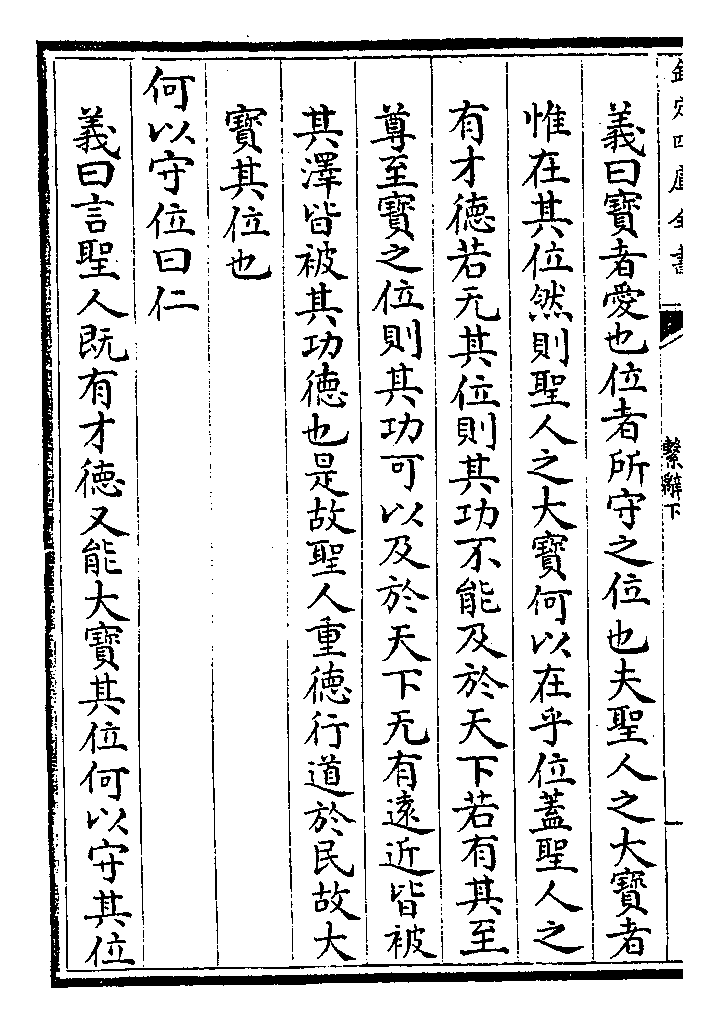 欽定四庫全書
繫辭下
義曰寳者愛也位者所守之位也夫聖人之大寳者
惟在其位然則聖人之大寳何以在乎位葢聖人之
有才德若无其位則其功不能及於天下若有其至
尊至寳之位則其功可以及於天下无有遠近皆被
其澤皆被其功德也是故聖人重德行道於民故大
寳其位也
何以守位曰仁
義曰言聖人既有才德又能大寳其位何以守其位